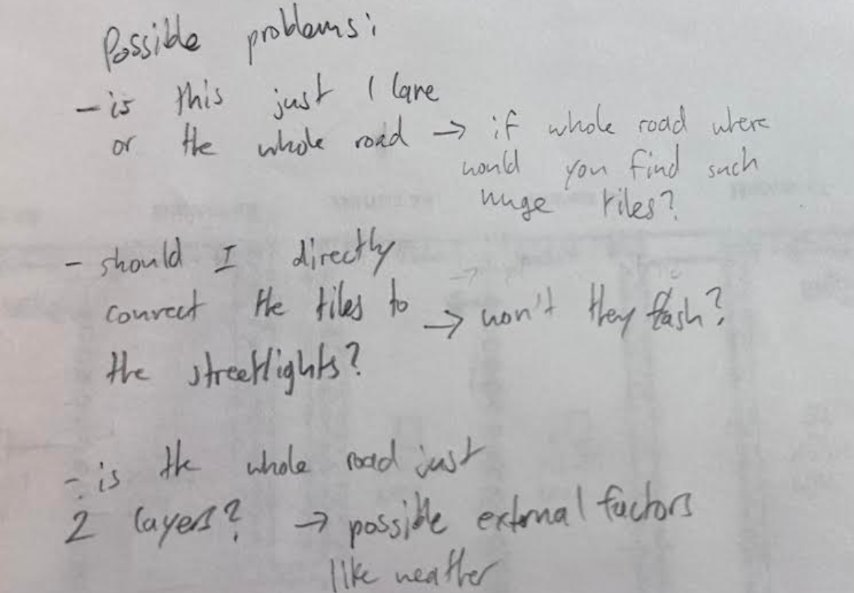 Possible problems:
- is this just 1 lane
or the whole road → if whole road where
would you find such
huge tiles?
- should I directly
connect the tiles to → won't they flash?
the streetlights?
- is the whole road just
2 layers? → possible external factors
like weather